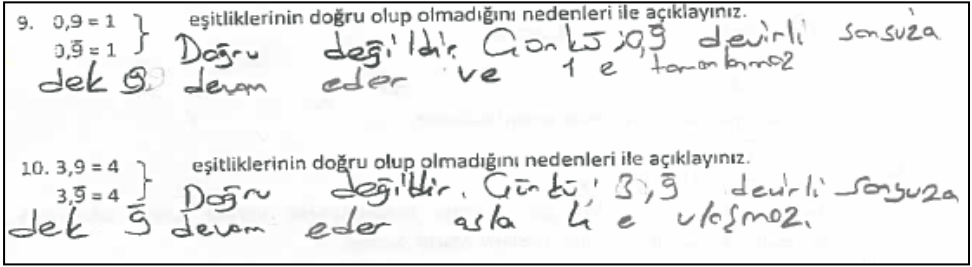 9. 0,9 = 1 } eşitliklerinin doğru olup olmadığını nedenleri ile açıklayınız.
0,9̅ = 1
Doğru değildir. Çünkü; 0,9̅ devirli sonsuza
dek 9 devam eder ve 1 e tamamlanmaz
10. 3,9 = 4 } eşitliklerinin doğru olup olmadığını nedenleri ile açıklayınız.
3,9̅ = 4
Doğru değildir. Çünkü; 3,9̅ devirli sonsuza
dek 9̅ devam eder asla 4 e ulaşmaz.